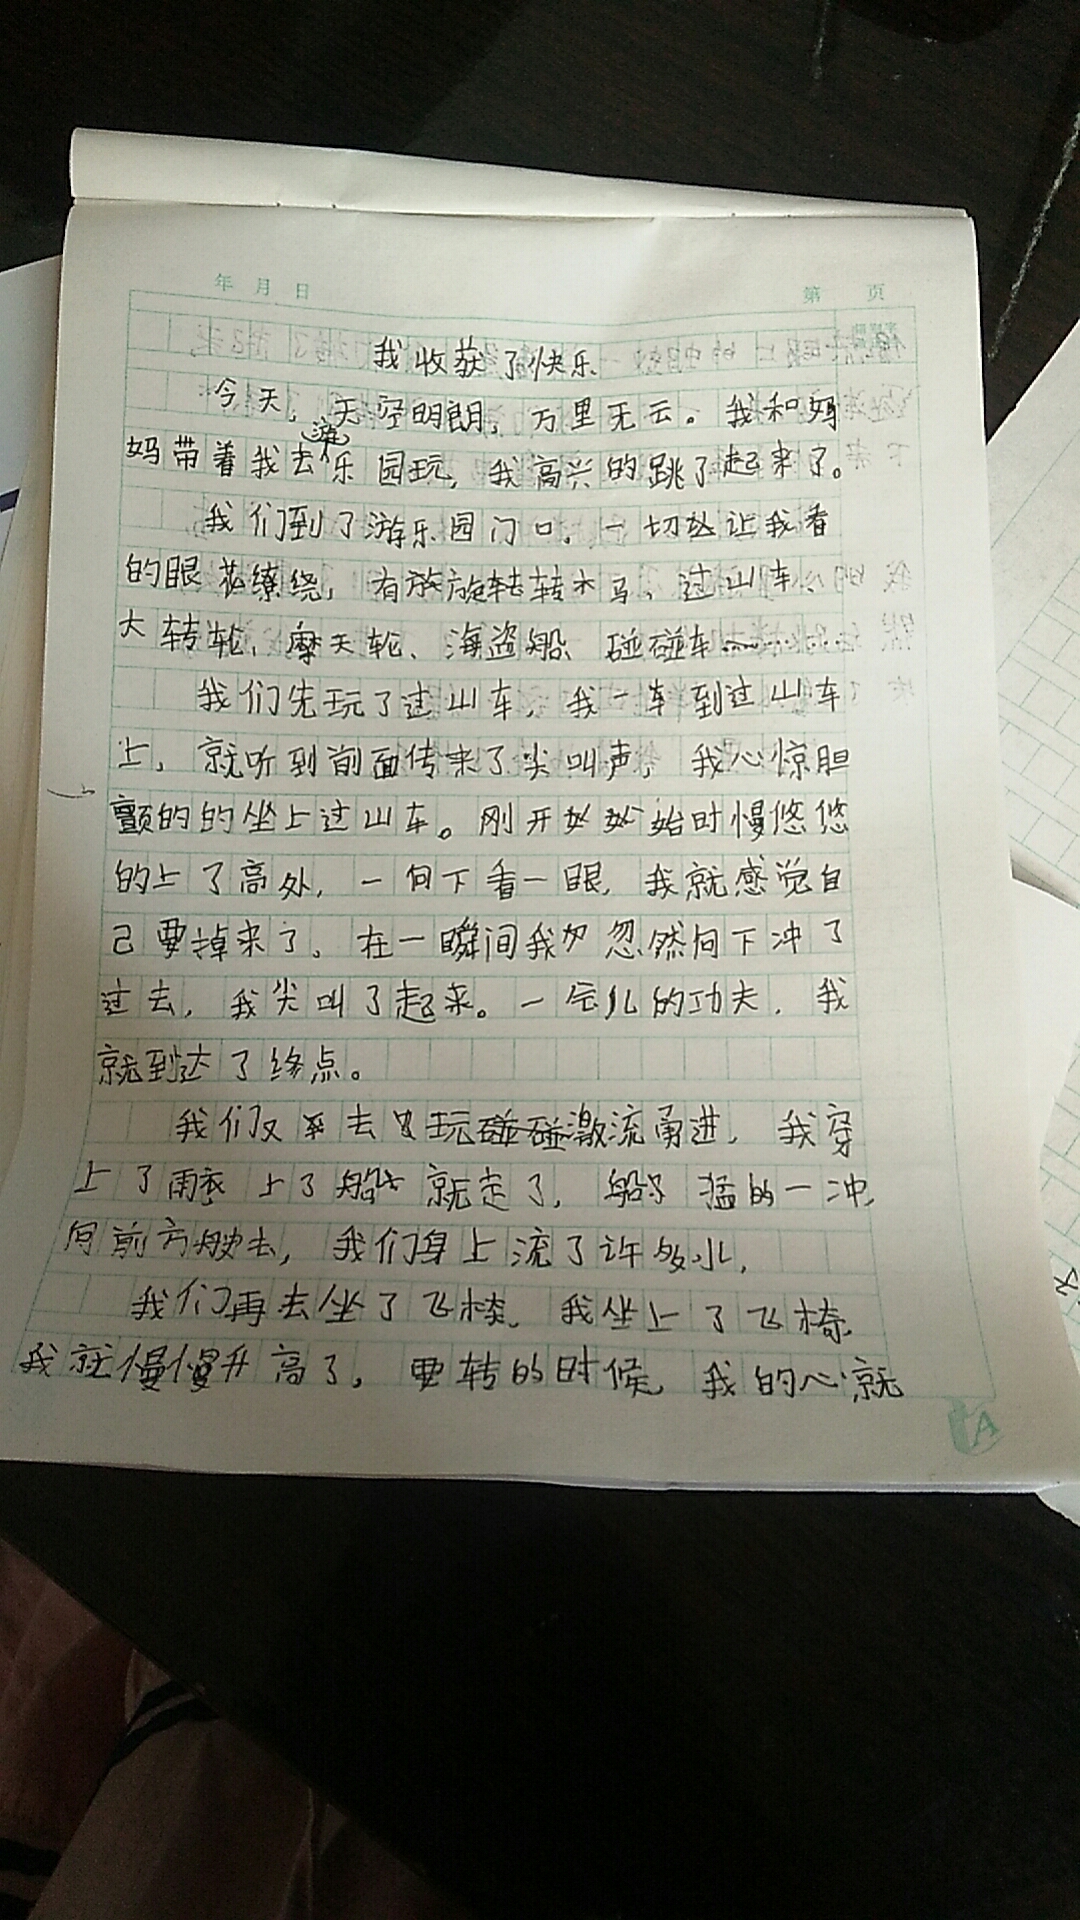 年 月 日
第 页
我收获了快乐
今天，天空明朗，万里无云。我和妈
妈带着我去游乐园玩，我高兴的跳了起来了。
我们到了游乐园门口，一切让我看
的眼花缭绕，有旋转木马、过山车、
大转轮、摩天轮、海盗船、碰碰车………
我们先玩了过山车，我一车到过山车
上，就听到前面传来了尖叫声，我心惊胆
颤的的坐上过山车。刚开始时慢悠悠
的上了高处，一向下看一眼，我就感觉自
己要掉来了。在一瞬间我忽然向下冲了
过去，我尖叫了起来。一会儿的功夫，我
就到达了终点。
我们又去玩激流勇进，我穿
上了雨衣上了船就走了，船了猛的一冲，
向前方驶去，我们身上流了许多水，
我们再去坐了飞椅，我坐上了飞椅，
我就慢慢升高了。要转的时候，我的心就